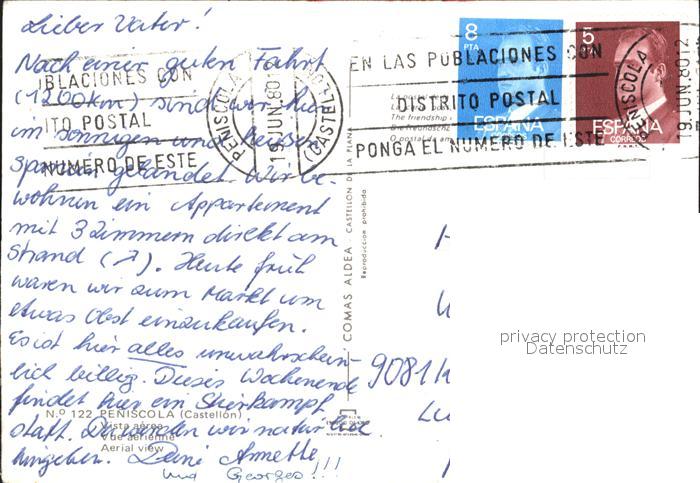 Lieber Vater!
Nach einer guten Fahrt
(1200 km) sind wir hier
im sonnigen und heissen
Spanien gelandet. Wir be-
wohnen ein Appartement
mit 3 Zimmern direkt am
Strand (↗). Heute früh
waren wir zum Markt um
etwas Obst einzukaufen.
Es ist hier alles unwahrschein-
lich billig. Dieses Wochenende
findet hier ein Stierkampf
statt. Da werden wir natürlich
hingehen. Deine Annette
und Georges!!!
N.º 122 PENISCOLA (Castellón)
Vista aérea
Vue aérienne
Aerial view
BLACIONES CON
ITO POSTAL
NUMERO DE ESTE
PENISCOLA
19.JUN.80
(CASTELLON
EN LAS POBLACIONES CON
DISTRITO POSTAL
PONGA EL NUMERO DE ESTE
PENISCOLA
19.JUN.8012
8
PTA
ESPAÑA
5
ESPAÑA
CORREOS
The friendship
COMAS ALDEA CASTELLON DE LA PLANA
Reproduccion prohibida
9081
privacy protection
Datenschutz